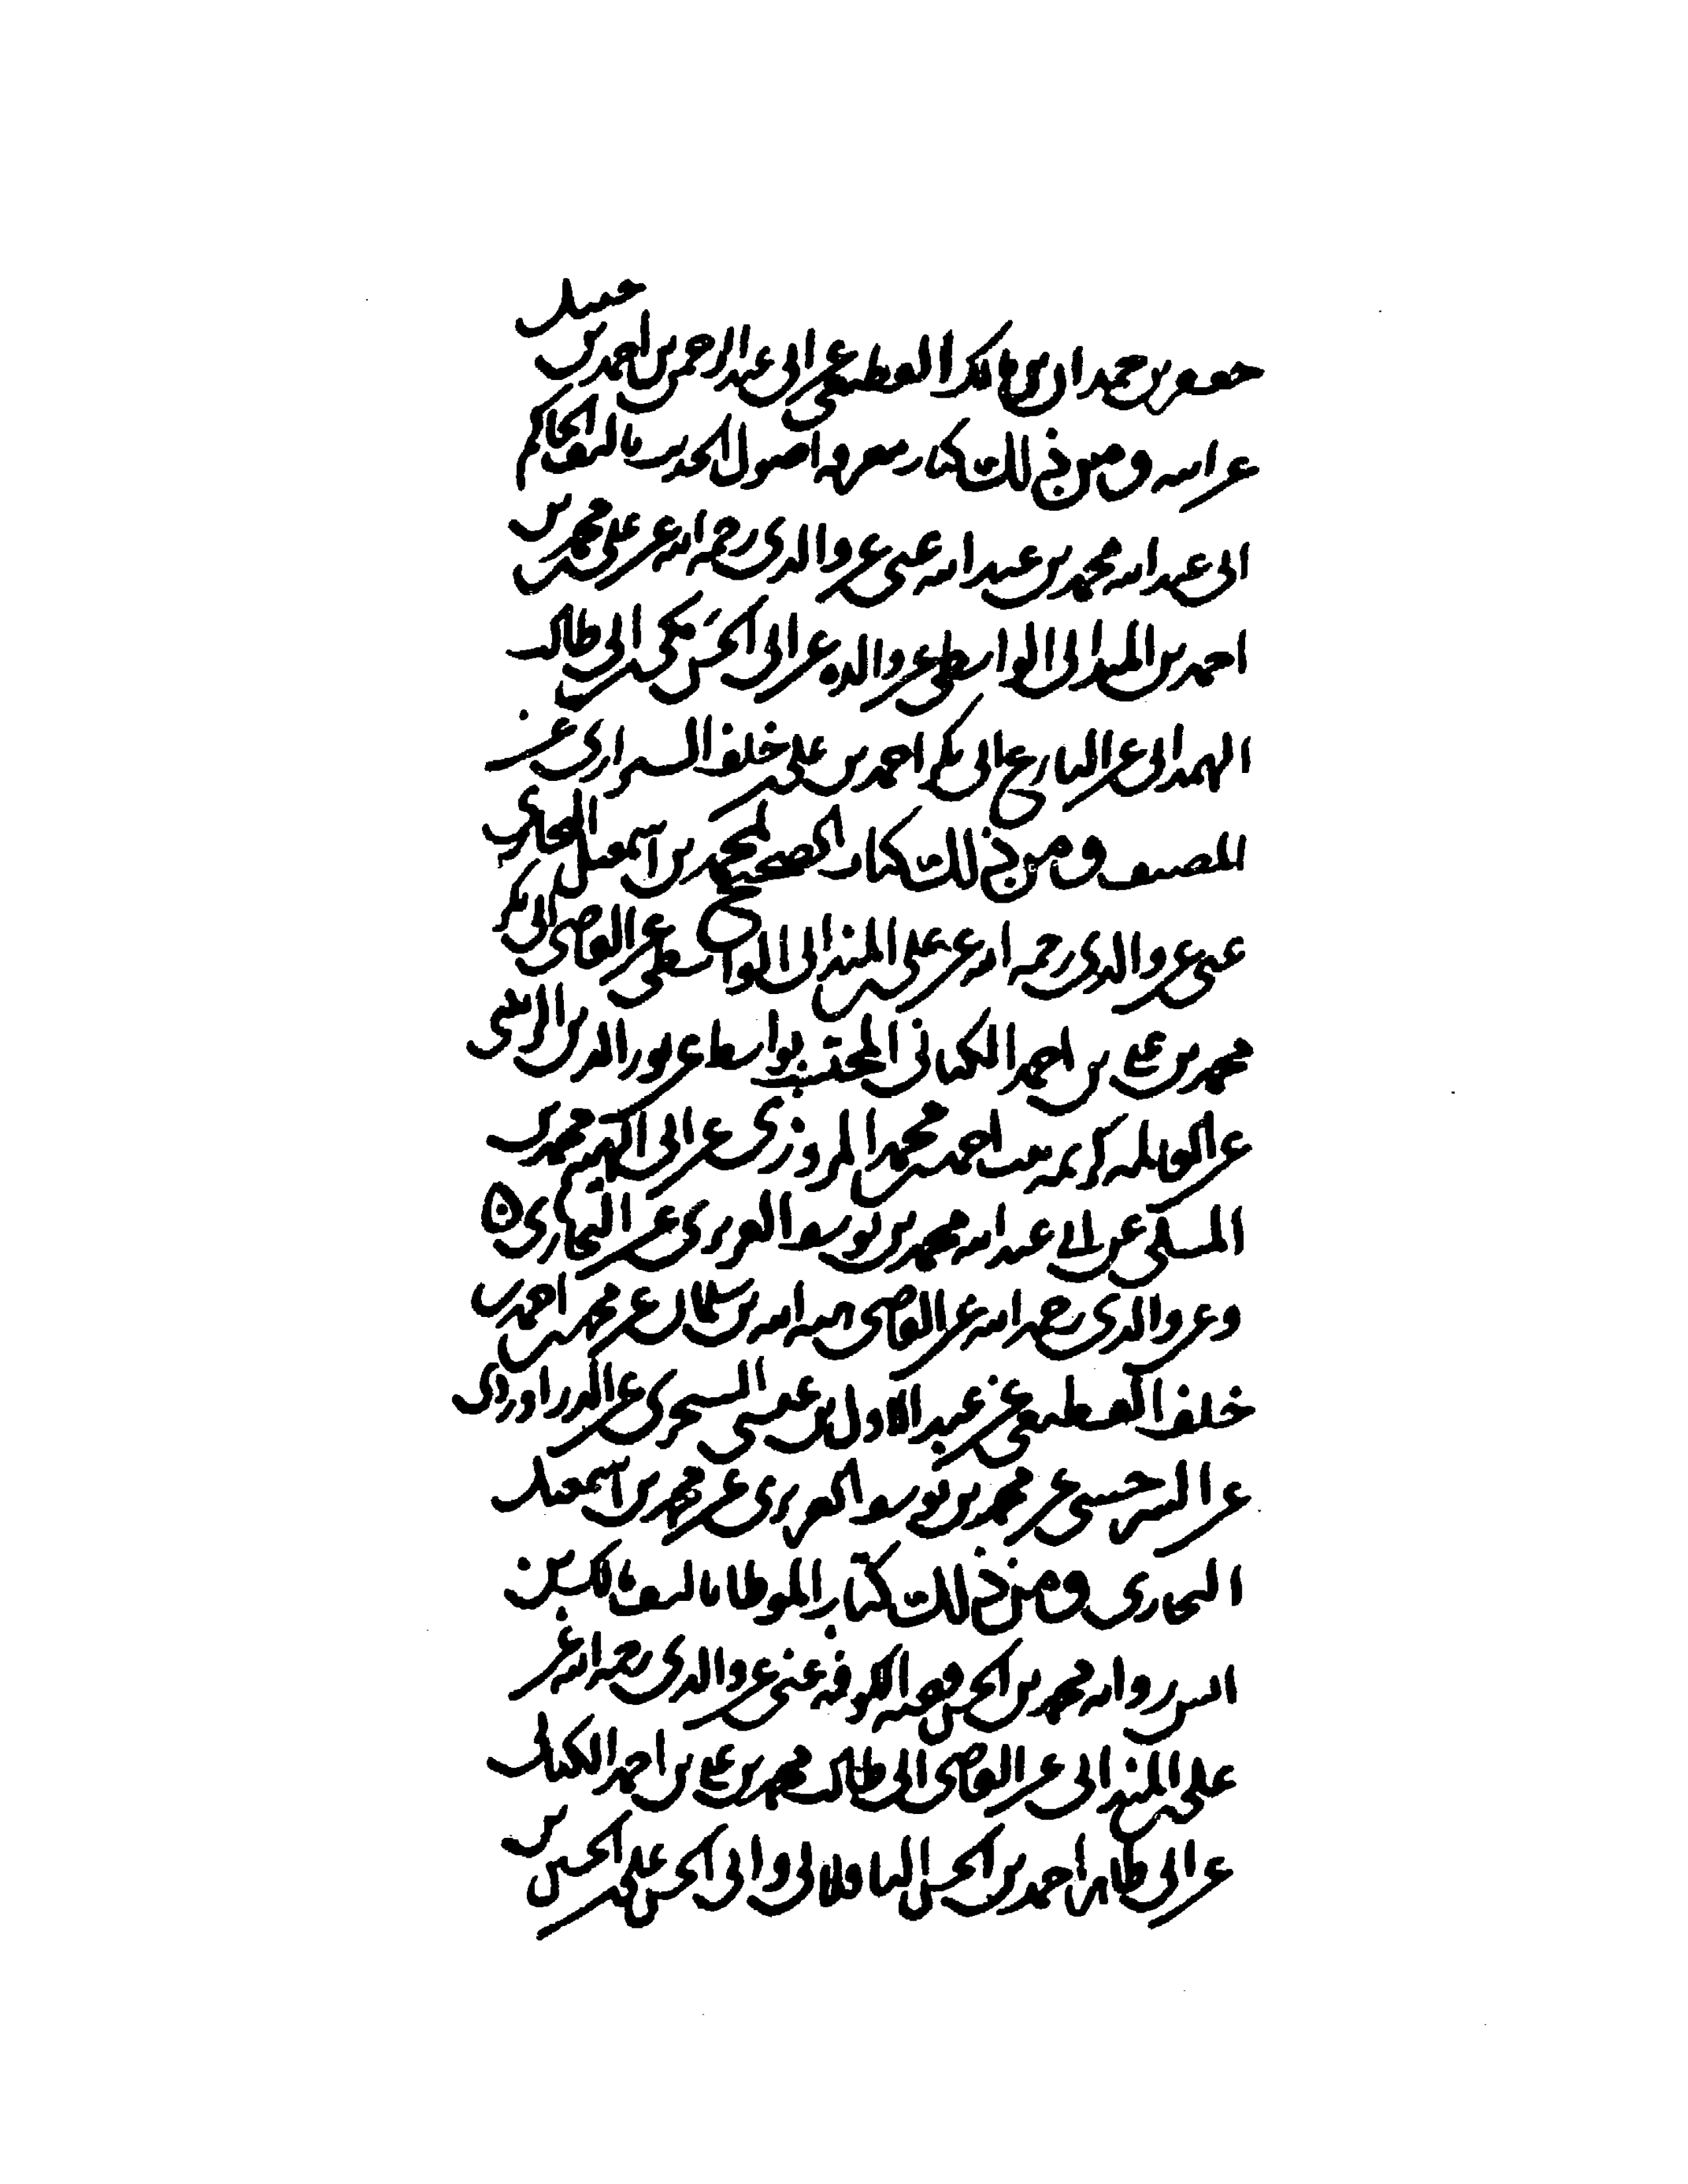 جعفر بن حمدان بن مالك القطيعي عن ابي عبد الرحمن بن احمد بن حنبل
عن ابيه ومن ذلك كتاب معرفه اصول الحديث تاليف الحاكم
ابي عبد الله محمد بن عبد الله عني عن والدي رحمه الله عن علي بن محمد بن
احمد بن المنداي الواسطي عن والده عن ابي الحسن مكي بن ابي طالب
الهمداني عن البارع ابي بكر احمد بن علي بن خلف الشيرازي عن
المصنف ومن ذلك كتاب الصحيح لمحمد بن اسمعيل البخاري
عني عن والدي رحمه الله عن علي بن المنداي الواسطي عن القاضي ابي بكر
محمد بن علي بن احمد الكتاني المحتسب بواسط عن نور الدين الزينبي
عن العالمه كريمه بنت احمد بن محمد المروزي عن ابي الهيثم محمد بن
المكي عن ابي عبد الله محمد بن يوسف الفربري عن البخاري ٥
وعن والدي رحمه الله عن القاضي هبه الله بن سلمان عن محمد بن احمد بن
خلف القطيعي عن عبد الاول بن عيسى السجزي عن الدراوردي
عن السرخسي عن محمد بن يوسف الفربري عن محمد بن اسمعيل
البخاري ومن ذلك كتاب الموطا تاليف مالك بن
انس روايه محمد بن الحسن فقيه الكوفه عني عن والدي رحمه الله عن
علي بن المنداي عن القاضي ابي طالب محمد بن علي بن احمد الكتاني
عن ابي طاهر احمد بن الحسن الباقلاني وابي الحسن علي بن الحسين بن